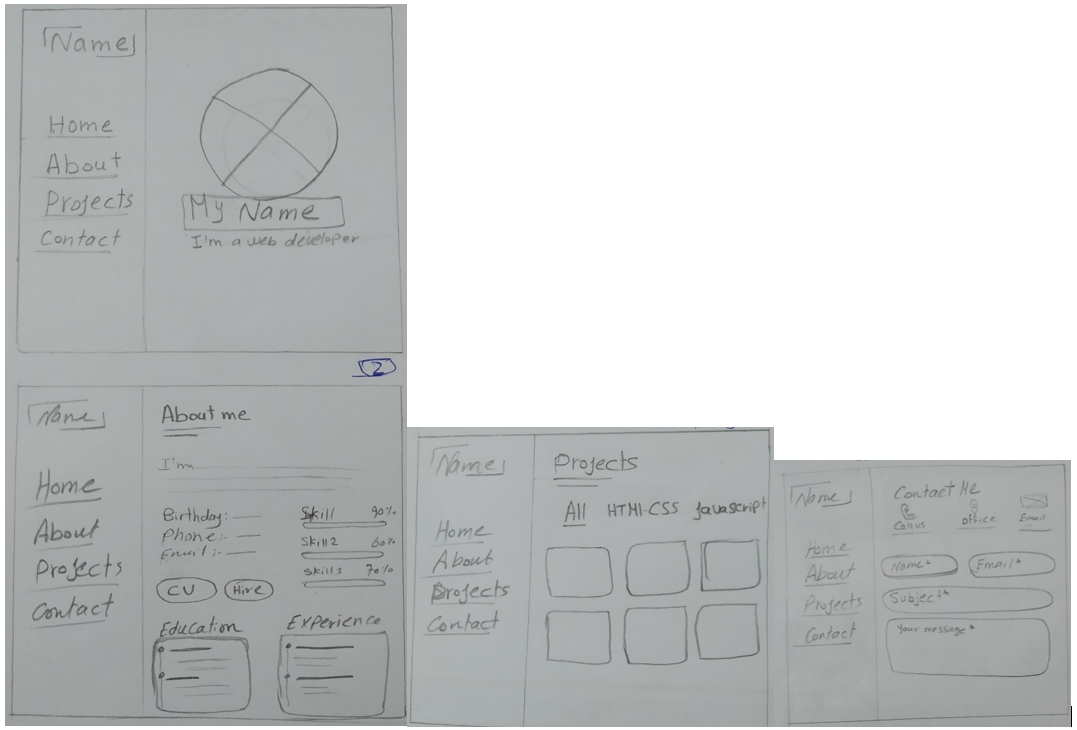 Name
Home
About
Projects
Contact
My Name
I'm a web developer
2
Name
Home
About
Projects
Contact
About me
I'm
Birthday:
Phone:-
Email:-
CU Hire
Skill 90%
Skill 2 60%
Skill 3 70%
Education
Experience
Name
Home
About
Projects
Contact
Projects
All HTML-CSS Javascript
Name
Home
About
Projects
Contact
Contact Me
Call us office Email
Name* Email*
Subject*
Your message*